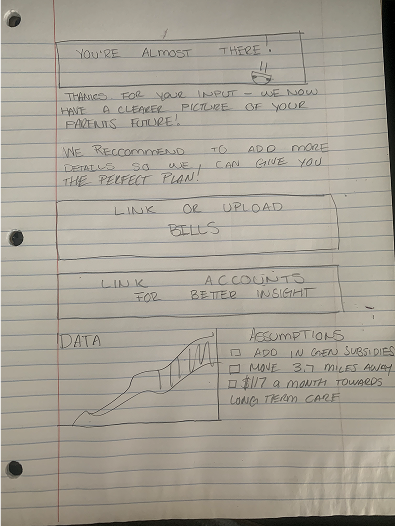 YOU'RE ALMOST THERE!
THANKS FOR YOUR INPUT – WE NOW
HAVE A CLEARER PICTURE OF YOUR
PARENTS FUTURE!
WE RECCOMMEND TO ADD MORE
DETAILS SO WE CAN GIVE YOU
THE PERFECT PLAN!
LINK OR UPLOAD
BILLS
LINK ACCOUNTS
FOR BETTER INSIGHT
DATA
ASSUMPTIONS
ADD IN GEN SUBSIDIES
MOVE 3.7 MILES AWAY
$117 A MONTH TOWARDS
LONG TERM CARE